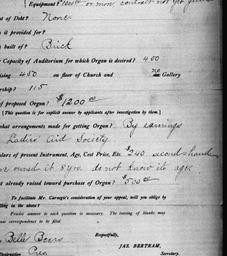 Equipment?
t of Debt? None
is it provided for?
s built of? Brick
Capacity of Auditorium for which Organ is desired? 450
ising 450 on floor of Church and no Gallery
ership? 115
f proposed Organ? $1200.00
[This question is for explicit answers by applicants after investigation by them.]
hat arrangements made for getting Organ? By earnings
Ladies Aid Society
ulars of present Instrument, Age, Cost Price, Etc. $240 second-hand
used it 8 yrs. do not know its age.
nt already raised toward purchase of Organ? $500.00
To facilitate Mr. Carnegie's consideration of the appeal, will you oblige by
lling in the above?
Precise answer to each question is necessary. The leaving of blanks may
ean correspondence to be filed.
Respectfully,
Belle Beers
JAS. BERTRAM,
Pres Secretary.